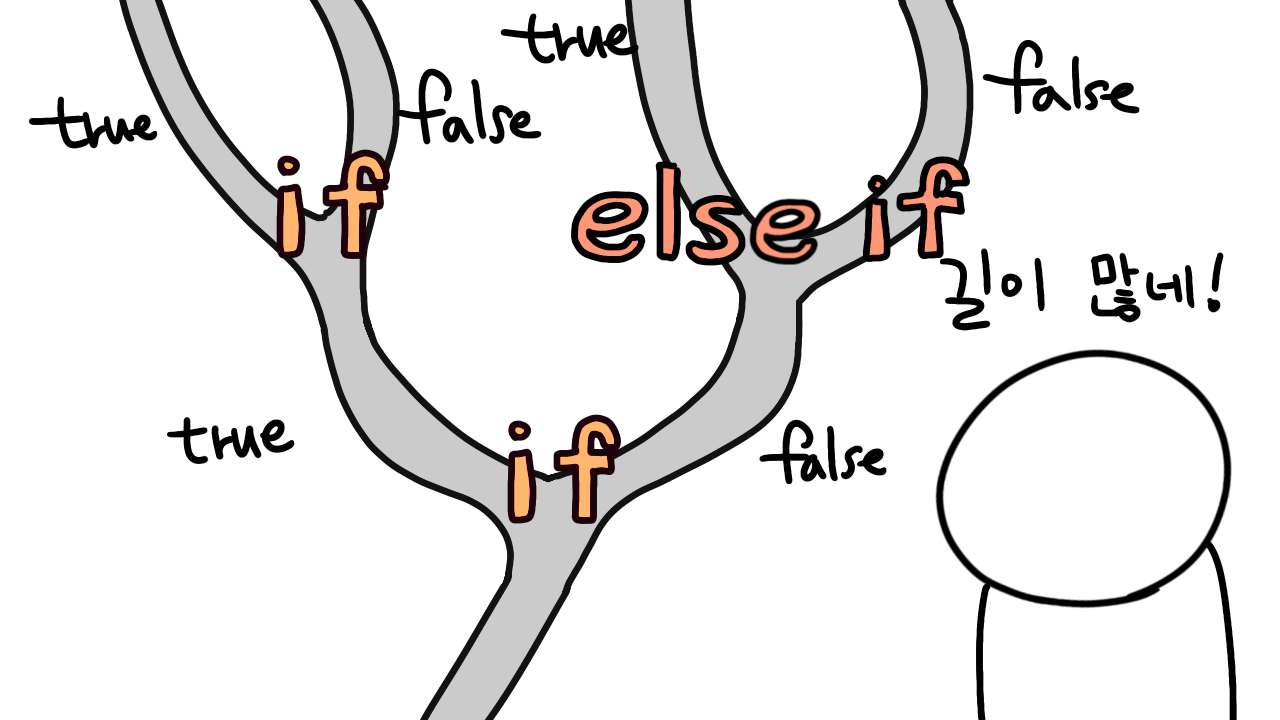 true
true
false
false
if
else if
길이 많네!
true
if
false